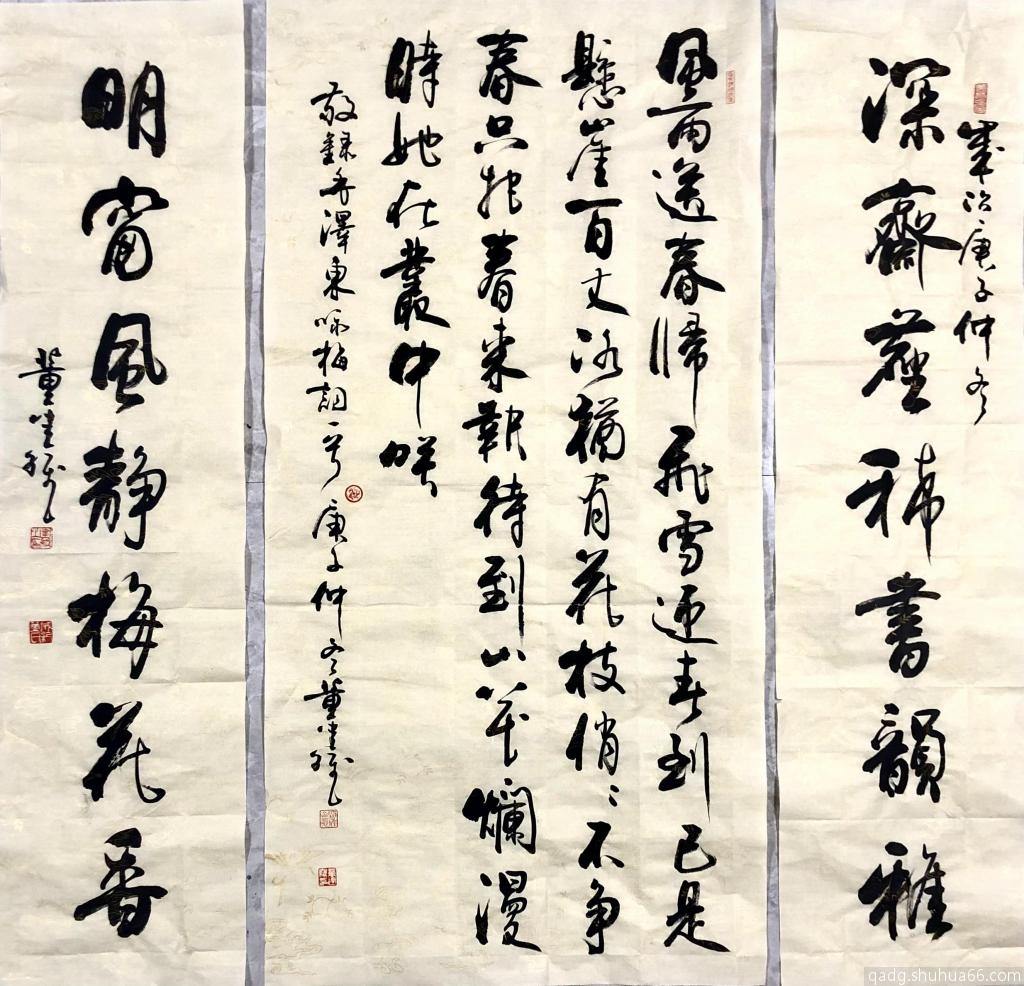 歲次庚子仲冬
深齋塵稀書韻雅
風雨送春歸飛雪迎春到已是
懸崖百丈冰猶有花枝俏々不争
春只把春來報待到山花爛漫
時她在叢中咲
敬録毛澤東咏梅詞一首庚子仲冬董
明窗風静梅花香
董
qadg.shuhua66.com